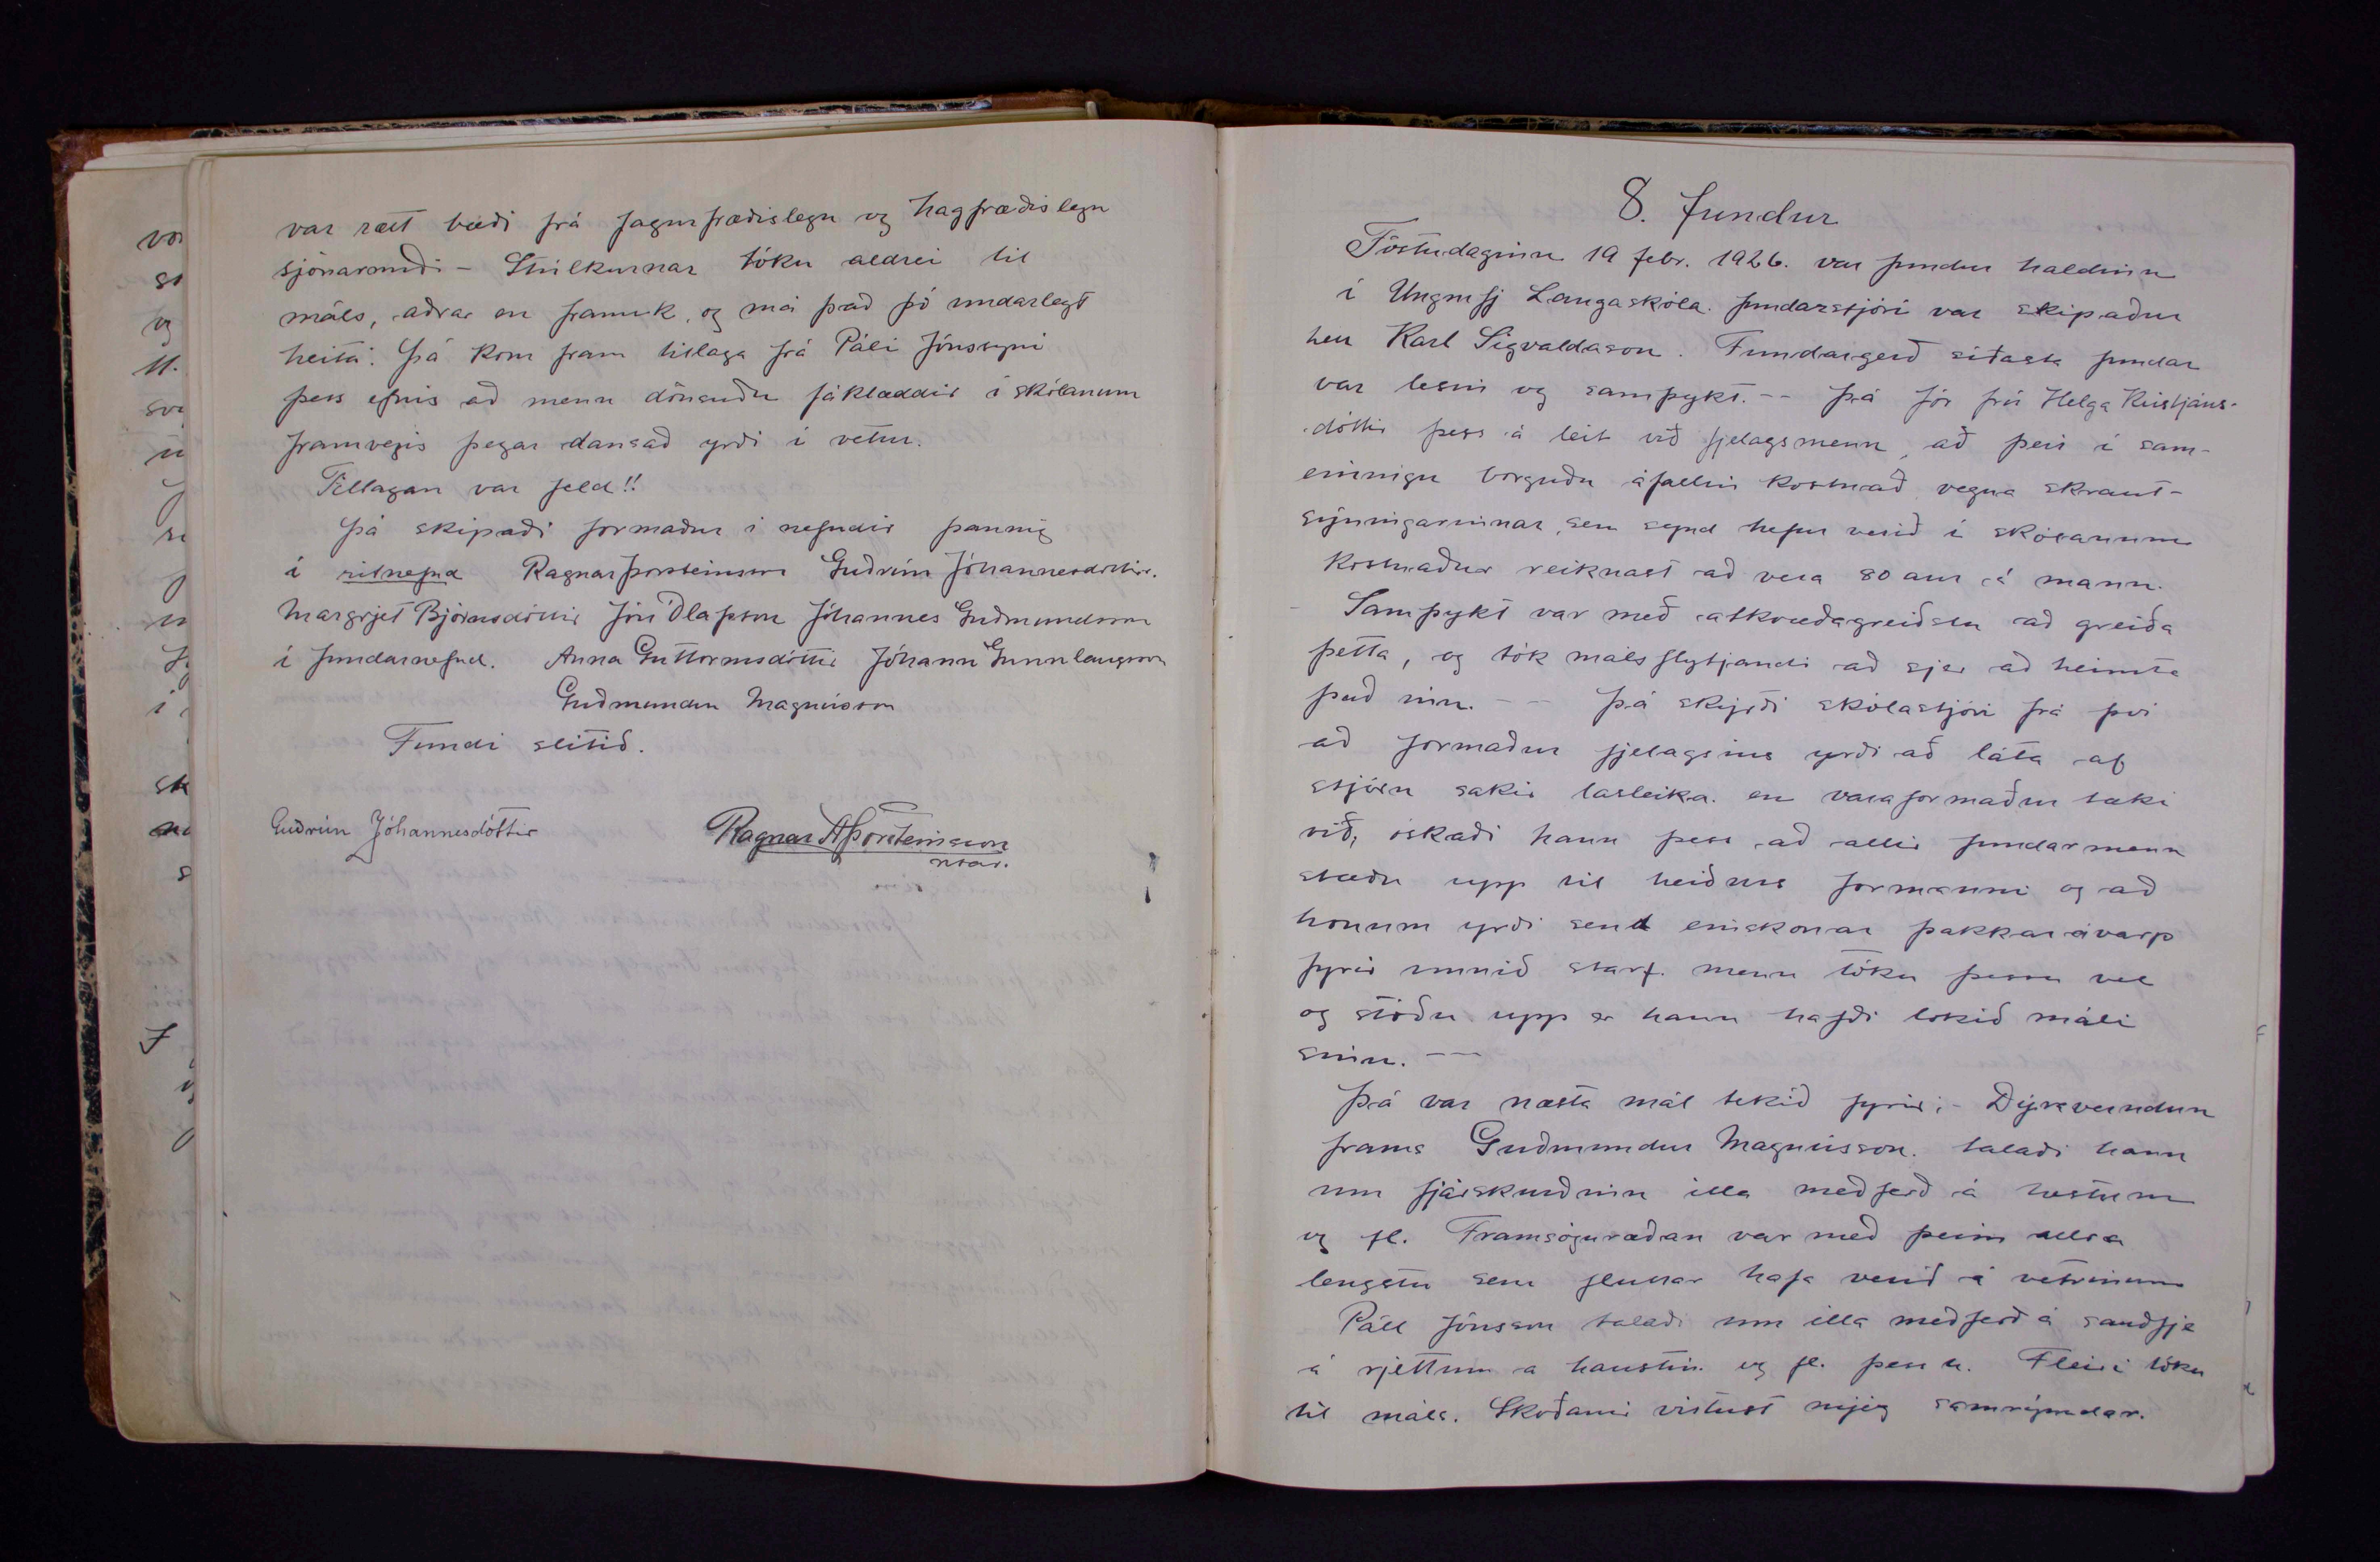 var rætt bæði frá fagurfræðislegu og hagfræðislegu
sjónarmiði - Stúlkurnar tóku aldrei til
máls, aðrar en frams.k. og má það þó undarlegt
heita. Þá kom fram tillaga frá Páli Jónssyni
þess efnis að menn dönsuðu fáklæddir í skólanum
framvegis þegar dansað yrði í vetur.
Tillagan var feld!!
Þá skipaði formaður í nefndir þannig
í ritnefnd Ragnar Þorsteinsson Guðrún Jóhannesdóttir.
Margrjet Björnsdóttir Jón Ólafsson Jóhannes Guðmundsson
í fundarnefnd. Anna Guttormsdóttir Jóhann Gunnlaugsson
Guðmundur Magnússon
Fundi slitið.
Guðrún Jóhannesdóttir
Ragnar A Þorsteinsson
ritari.
8. fundur
Föstudaginn 19 febr. 1926. var fundur haldinn
í Ungmfj Laugaskóla. fundarstjóri var skipaður
herr Karl Sigvaldason. Fundargerð síðasta fundar
var lesin og samþykt. -- Þá fór frú Helga Kristjáns-
dóttir þess á leit við fjelagsmenn, að þeir í sam-
einingu borguðu áfallin kostnað vegna skraut-
sýningarinnar, sem sýnd hefur verið í skólanum
Kostnaður reiknast að vera 80 aur á mann.
- Samþykt var með atkvæðagreiðslu að greiða
þetta, og tók málsflytjandi að sjer að heimta
það inn. -- Þá skýrði skólastjóri frá því
að formaður fjelagsins yrði að láta af
stjórn sakir lasleika. en varaformaður tæki
við, óskaði hann þess að allir fundarmenn
stæðu upp til heiðurs formanni og að
honum yrði send einskonar þakkarávarp
fyrir unnið starf. menn tóku þessu vel
og stóðu upp er hann hafði lokið máli
sínu. --
Þá var næsta mál tekið fyrir; - Dýraverndun
frams Guðmundur Magnússon. talaði hann
um fjárskurðinn illa meðferð á hestum
og fl. Framsöguræðan var með þeim allra
lengstu sem fluttar hafa verið á vetrinum
Páll Jónsson talaði um illa meðferð á sauðfje
á rjettum a haustin. og fl. þess u. Fleiri tóku
til máls. Skoðanir virtust mjög samrýmdar.